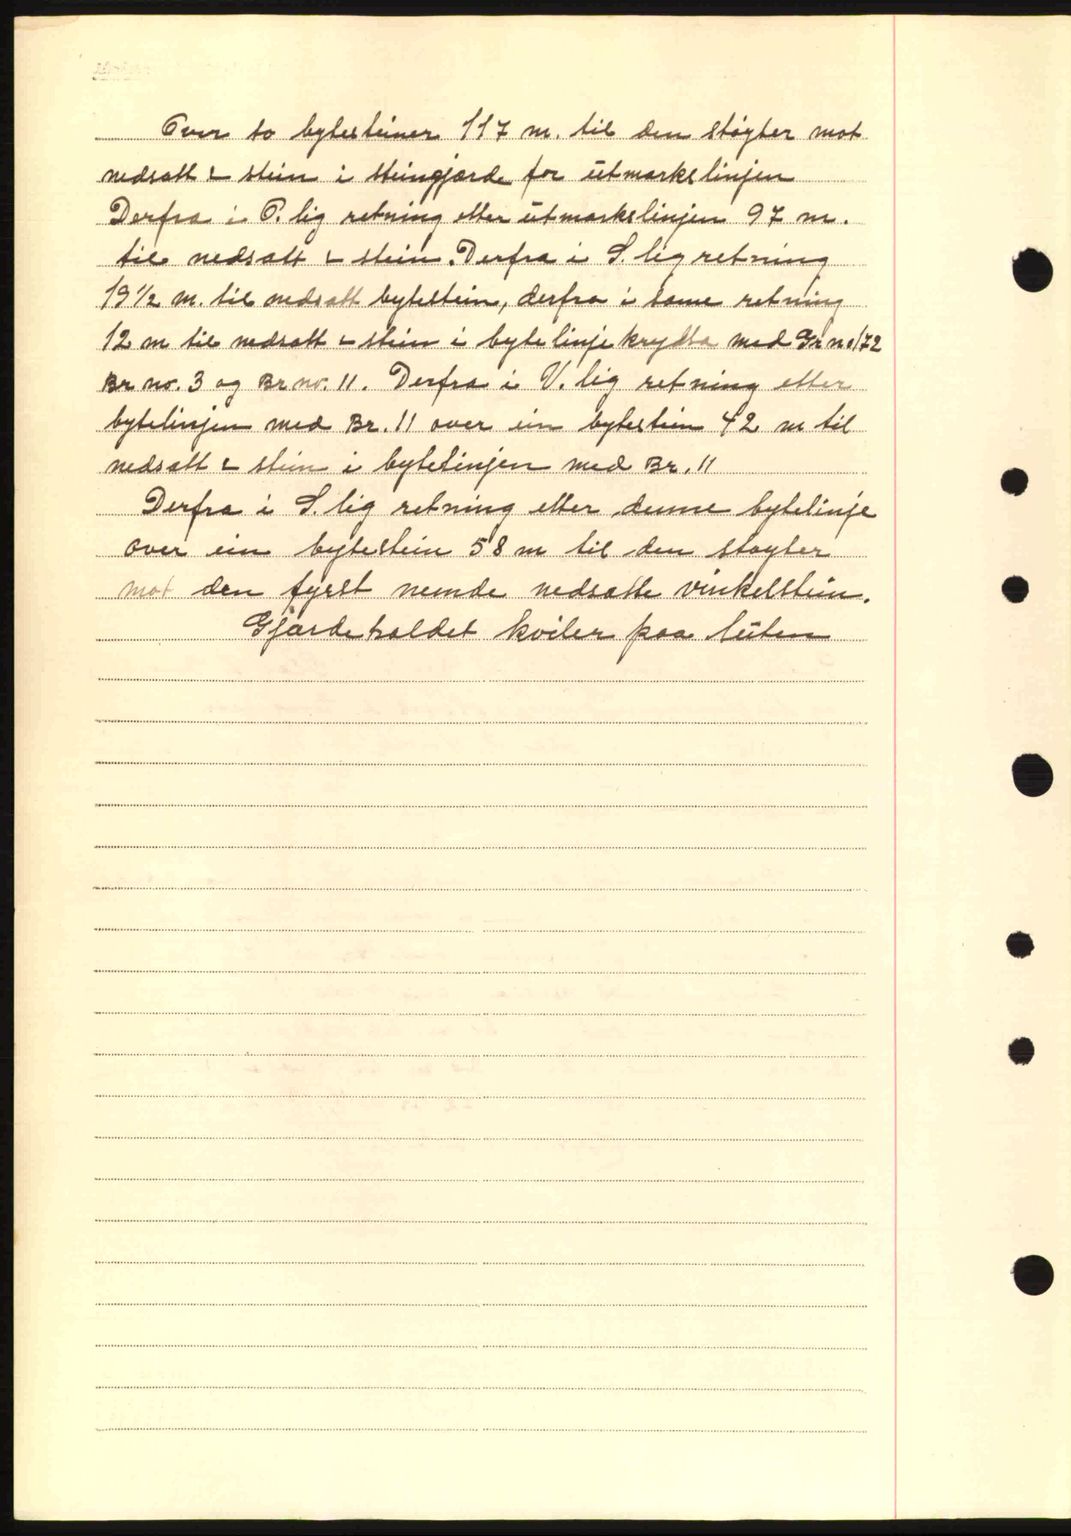 Over to bytesteiner 117 m. til den støyter mot
nedsatt ∟ stein i steingjærde for utmarkslinjen
Derfra i Ø. lig retning etter utmarkslinjen 97 m.
til nedsatt ∟ stein. Derfra i S. lig retning
19 1/2 m. til nedsatt bytestein, derfra i same retning
12 m til nedsatt ∟ stein i bytelinje krydsa med Gr no 172
Br no. 3 og Br no. 11. Derfra i V. lig retning etter
bytelinjen med Br. 11 over ein bytestein 42 m til
nedsatt ∟ stein i bytelinjen med Br. 11
Derfra i S. lig retning etter denne bytelinje
over ein bytestein 58 m til den støyter
mot den fyrst nemde nedsatte vinkelstein.
Gjærdehaldet kviler paa luten